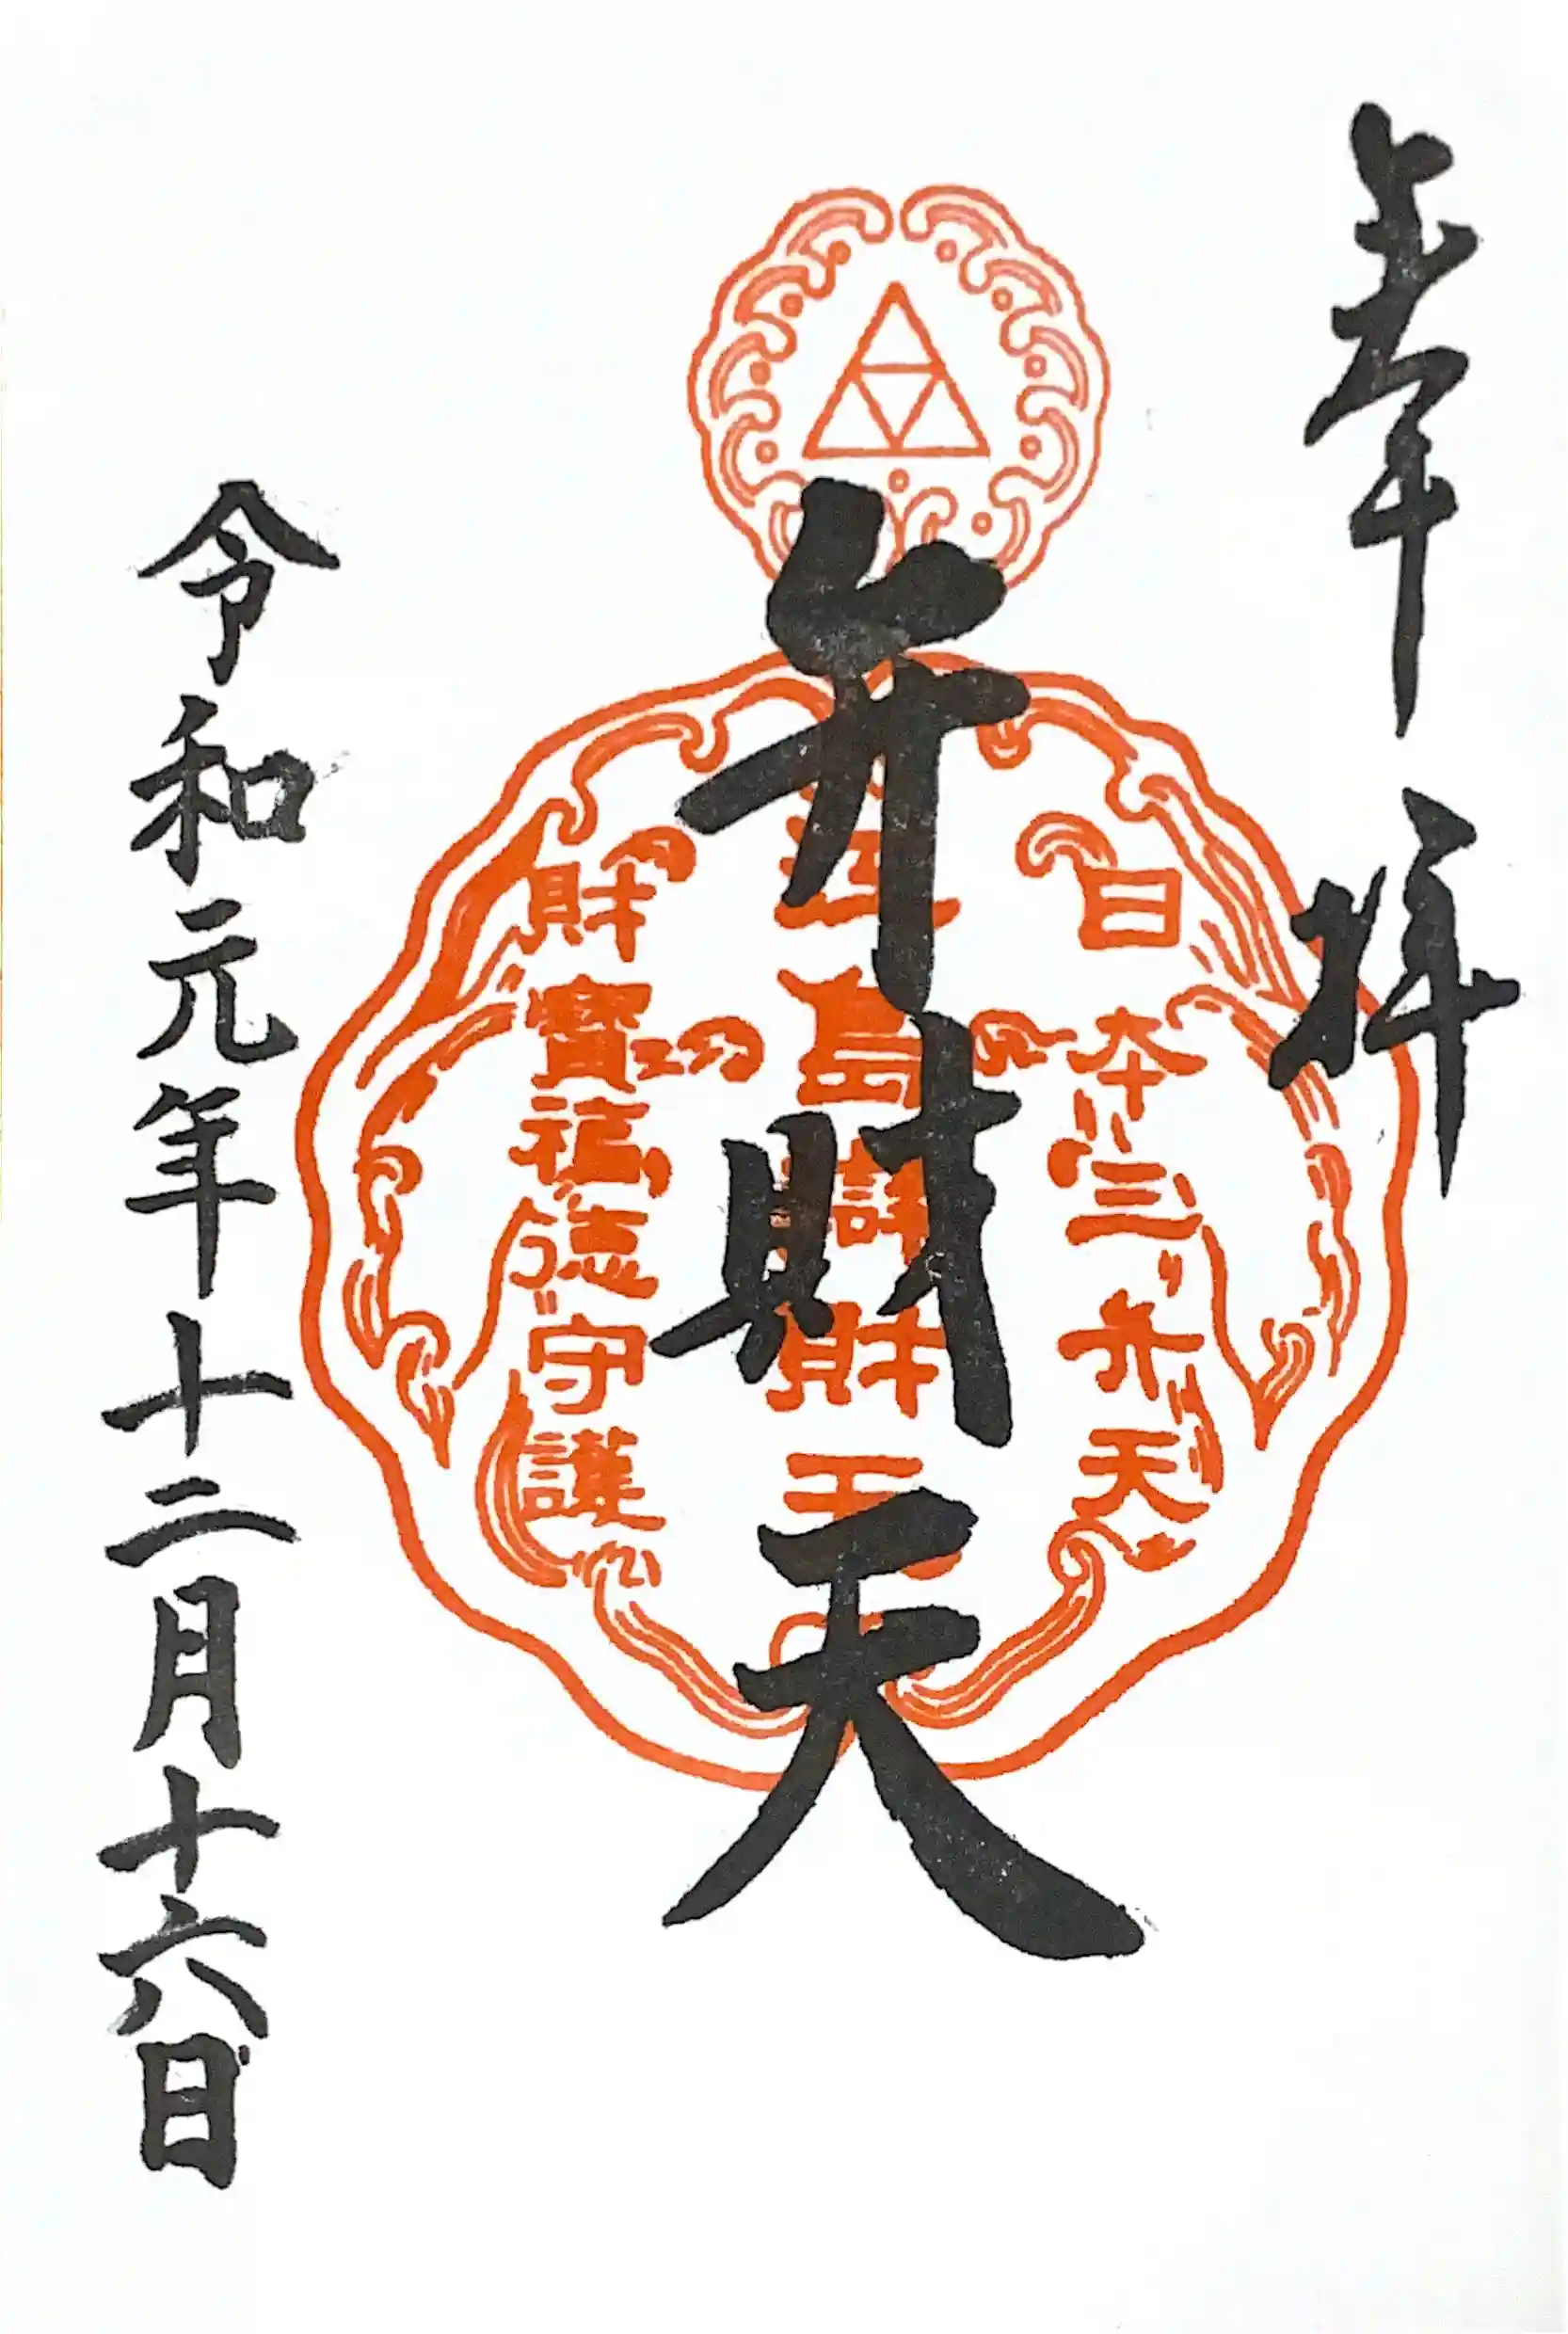 奉拝
日本三弁天
江島辯財天
弁財天
財寶福徳守護
令和元年十二月十六日